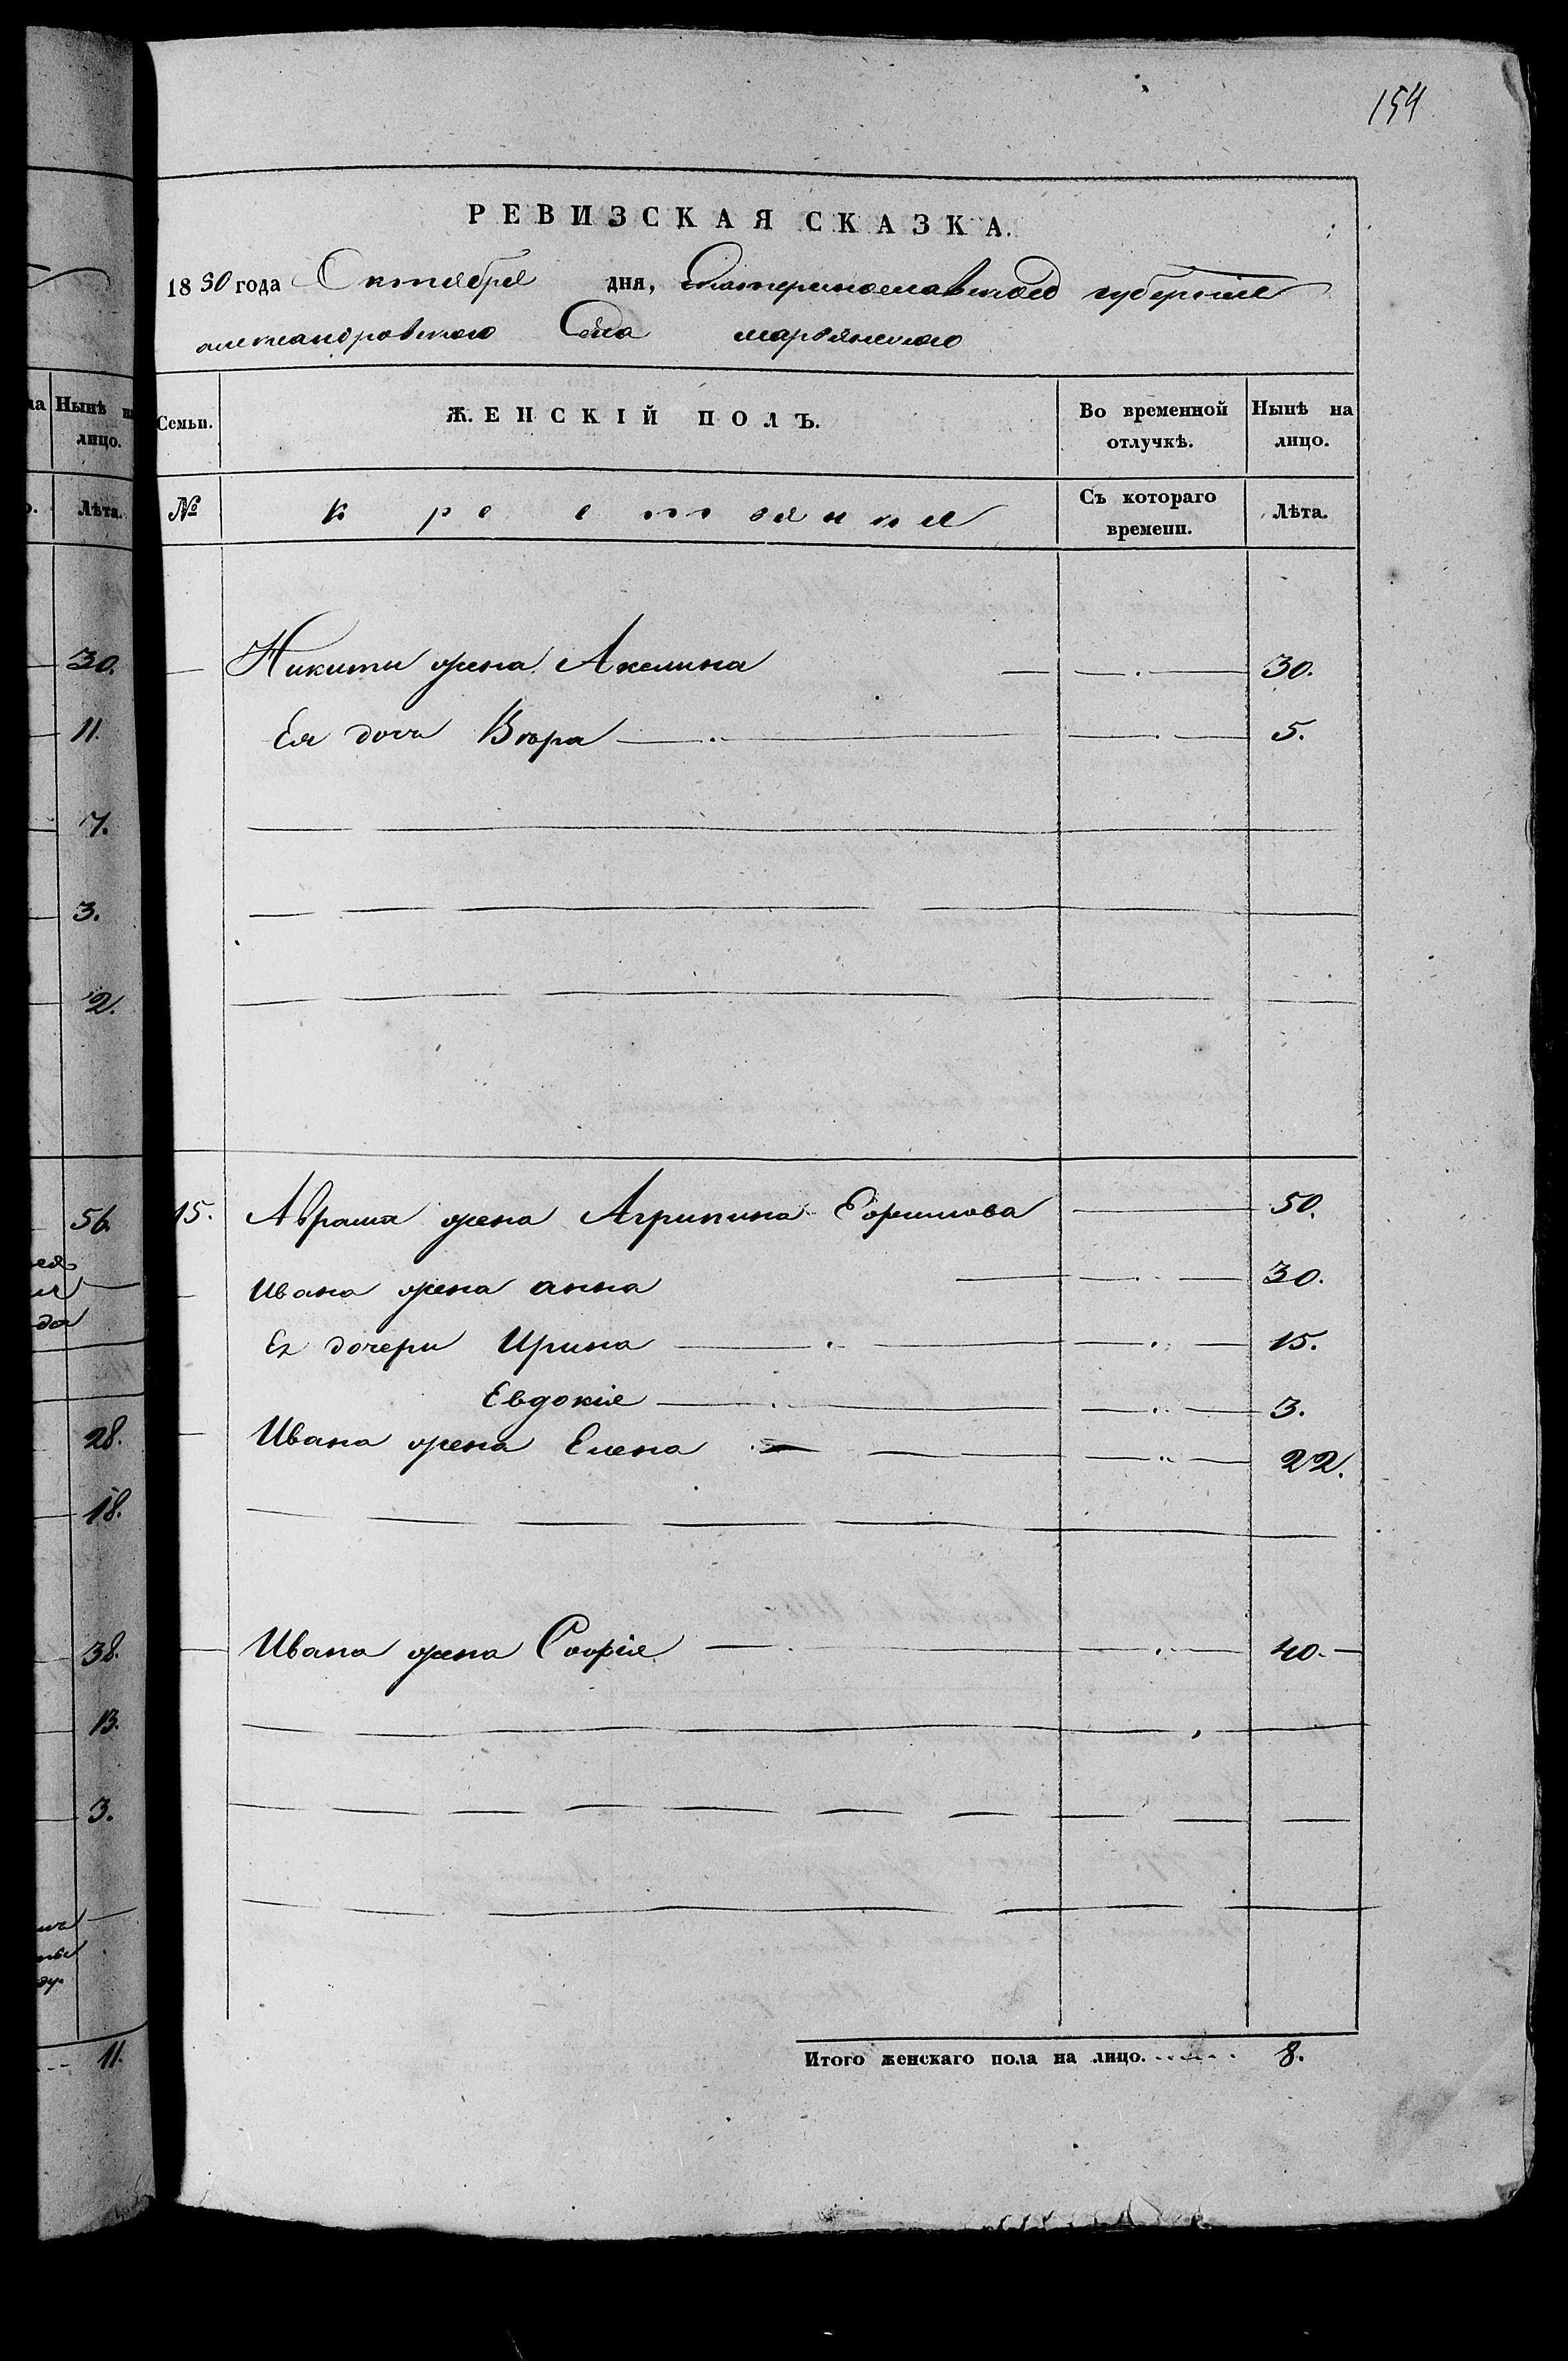 154
РЕВИЗСКАЯ СКАЗКА.
1850 года Октября дня, Екатеринославской губернiи
александровского Села марьянского
Нынѣ на лицо.
Лѣта.
30.
11.
7.
3.
2.
56.
28.
18.
38.
13.
3.
11.
Семьи. ЖЕНСКIЙ ПОЛЪ. Во временной отлучкѣ. Нынѣ на лицо.
№ крестьянки Съ котораго времени. Лѣта.
Никиты жена Акелина 30.
Ея дочь Вѣра 5.
15. Аврама жена Агрипина Ефимова 50.
Ивана жена анна 30.
Ея дочери Ирина 15.
Евдокiя 3.
Ивана жена Елена 22.
Ивана жена Софiя 40.
Итого женскаго пола на лицо. 8.